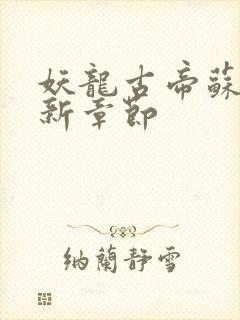 妖龍古帝蘇
新章節
納蘭靜雪